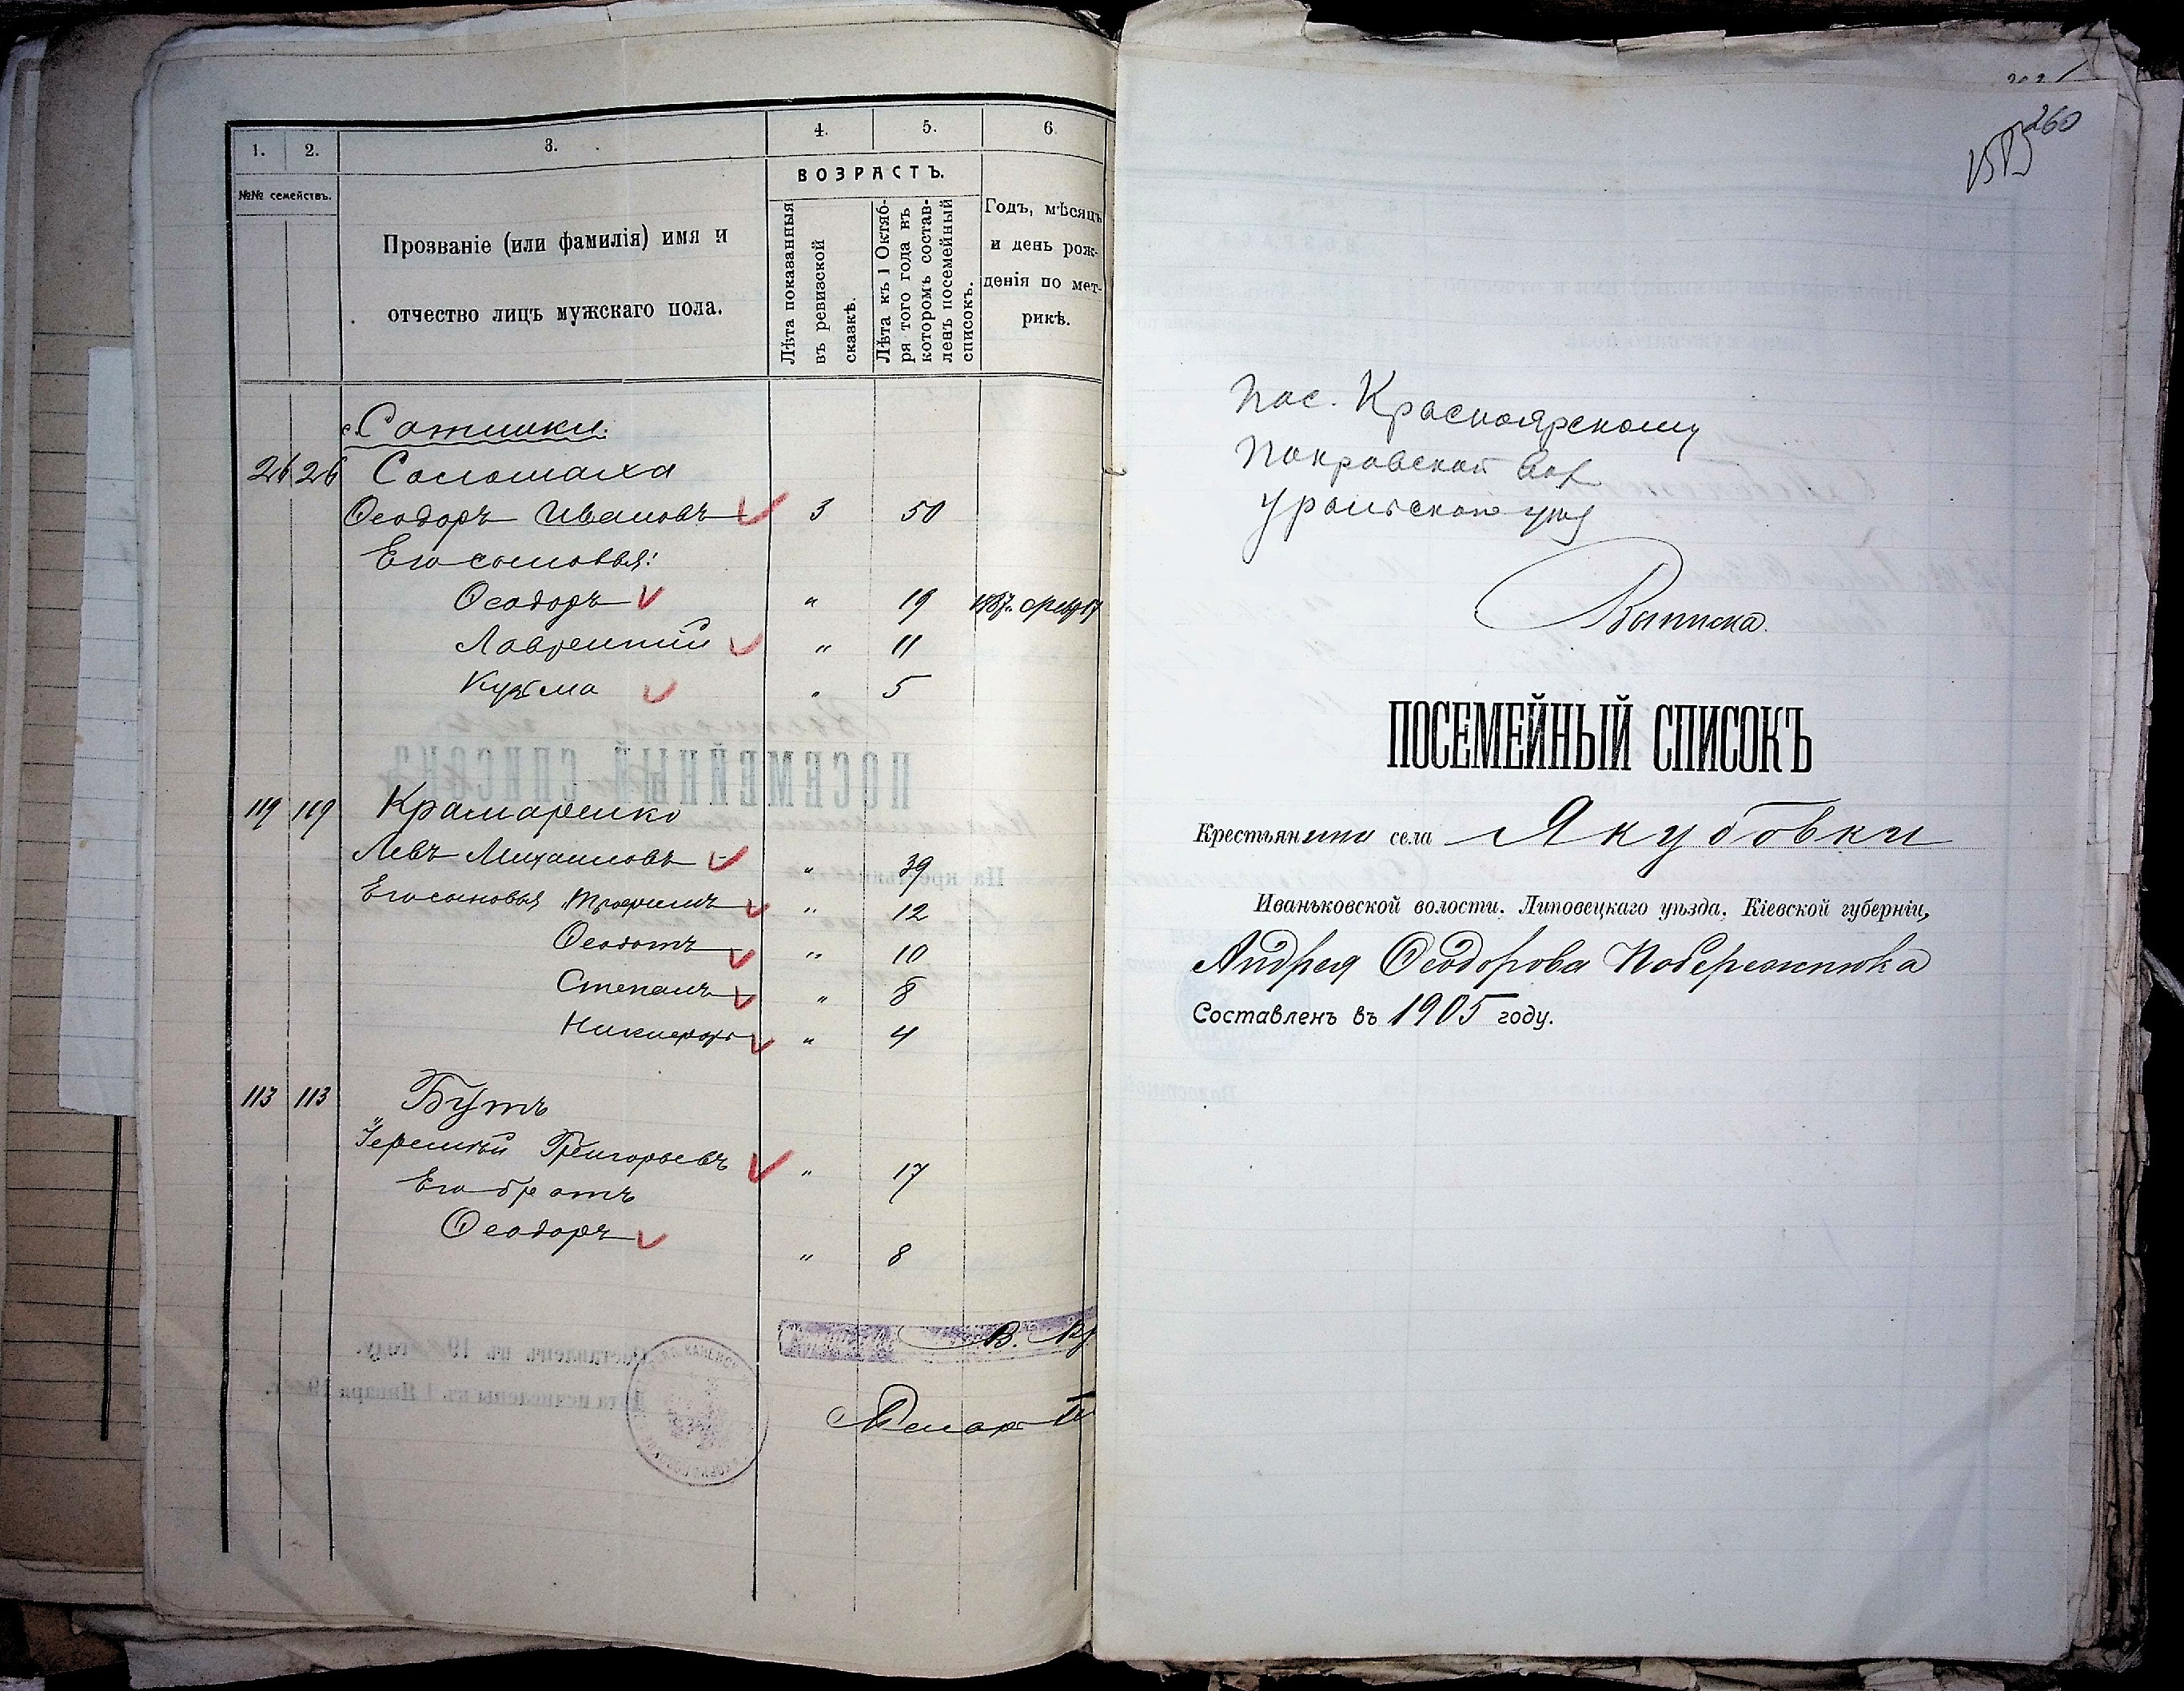 1. 2. 3. 4. 5. 6.
№№ семействъ.
Прозваніе (или фамилія) имя и
отчество лицъ мужскаго пола.
ВОЗРАСТЪ.
Лѣта показанныя
въ ревизской
сказкѣ.
Лѣта къ 1 Октяб-
ря того года въ
которомъ состав-
ленъ посемейный
списокъ.
Годъ, мѣсяцъ
и день рож-
денія по мет-
рикѣ.
с. Сотники.
26 26 Соломаха
Ѳеодоръ Ивановъ 3 50
Его сыновья:
Ѳеодоръ " 19 1887
Лаврентій " 11
Кузьма " 5
119 119 Крамаренко
Левъ Михаиловъ " 39
Его сыновья Трофимъ " 12
Ѳеодотъ " 10
Степанъ " 8
Никифоръ " 4
113 113 Бутъ
Іеремій Григорьевъ " 17
Его братъ
Ѳеодоръ " 8
В.
260
Пос. Красноярскому
Покровской вол
Уральского уѣз
Выписка.
ПОСЕМЕЙНЫЙ СПИСОКЪ
Крестьянина села Якубовки
Иваньковской волости, Липовецкаго уѣзда, Кіевской губерніи,
Андрея Ѳеодорова Побережнюка
Составленъ въ 1905 году.